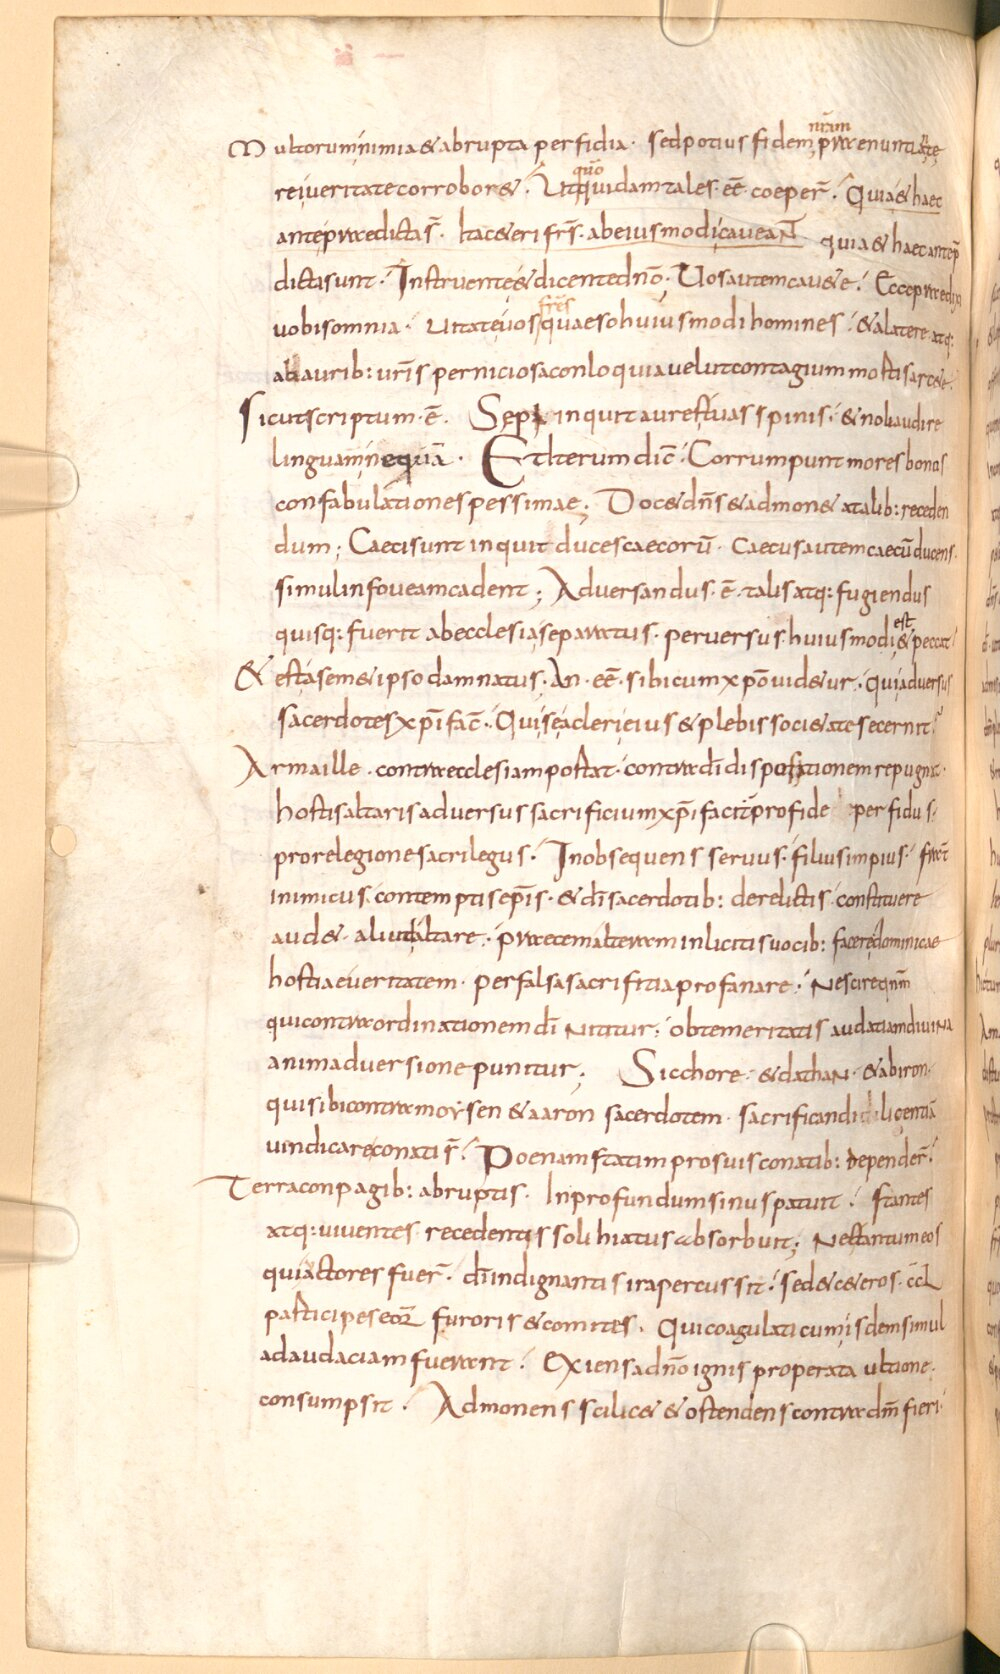 Multorum nimia & abrupta perfidia · sed potius fidem nr̄am praenuntiatae
rei ueritate corrobor& · Ut quō quidam tales · eē · coeper̄ · Quia & haec
ante praedicta s̄ · Ita c&eri fr̄s · ab eiusmodi caueaNt quia & haec ante p̄
dicta sunt · Instruente & dicente dn̄o · Uos autem cau&e · Ecce praedixi
uobis omnia · Uitate uos frēs quaeso huiusmodi homines · & a latere atq:
ab aurib: ur̄is perniciosa conloquia uelut contagium mortis arc&e
Sicut scriptum · ē · Sepi inquit aures tuas spinis · & noli audire
linguam nequā · Et Iterum dic̄ · Corrumpunt mores bonos
confabulationes pessimae; Doc& dn̄s & admon& a talib: receden
dum; Caeci sunt inquit duces caecorū · Caecus autem caecū ducens ·
simul in foueam cadent; Aduersandus · ē · talis atq: fugiendus
quisq: fuerit ab ecclesia separatus · peruersus huiusmodi est & peccat
& est a sem&ipso damnatus · An · eē · sibi cum xp̄o uid&ur · qui aduersus
sacerdotes xp̄i fac̄ · Qui se a cleri eius & plebis soci&ate secernit ·
Arma ille · contra ecclesiam portat · contra dī dispositionem repugnat ·
hostis altaris aduersus sacrificium xp̄i facit pro fide perfidus ·
pro relegione sacrilegus · Inobsequens seruus · filius impius · frat̄
inimicus · contemptis ep̄is · & dī sacerdotib: derelictis constituere
aud& · aliud altare · praecem alteram inlicitis uocib: facere dominicae
hostiae ueritatem · per falsa sacrificia profanare · Nescire qnm̄
qui contra ordinationem dī nititur · ob temeritatis audatiam diuina
animaduersione punitur; Sic chore · & dathaN · & abiron ·
qui sibi contra moysen & aaron sacerdotem · sacrificandi licentiā
uindicare conati s̄ · Poenam statim pro suis conatib: depender̄ ·
Terra conpagib: abruptis · In profundum sinus patuit · stantes
atq: uiuentes recedentis soli hiatus absorbuit; Nec tantum eos
qui actores fuer̄ · dī indignantis ira percussit · sed & c&eros · ccL
participes eoꝝ furoris & comites · Qui coagulati cum isdem simul
ad audaciam fuerant · Exiens a dn̄o ignis properata ultione ·
consumpsit · Admonens scilic& & ostendens contra dm̄ fieri ·